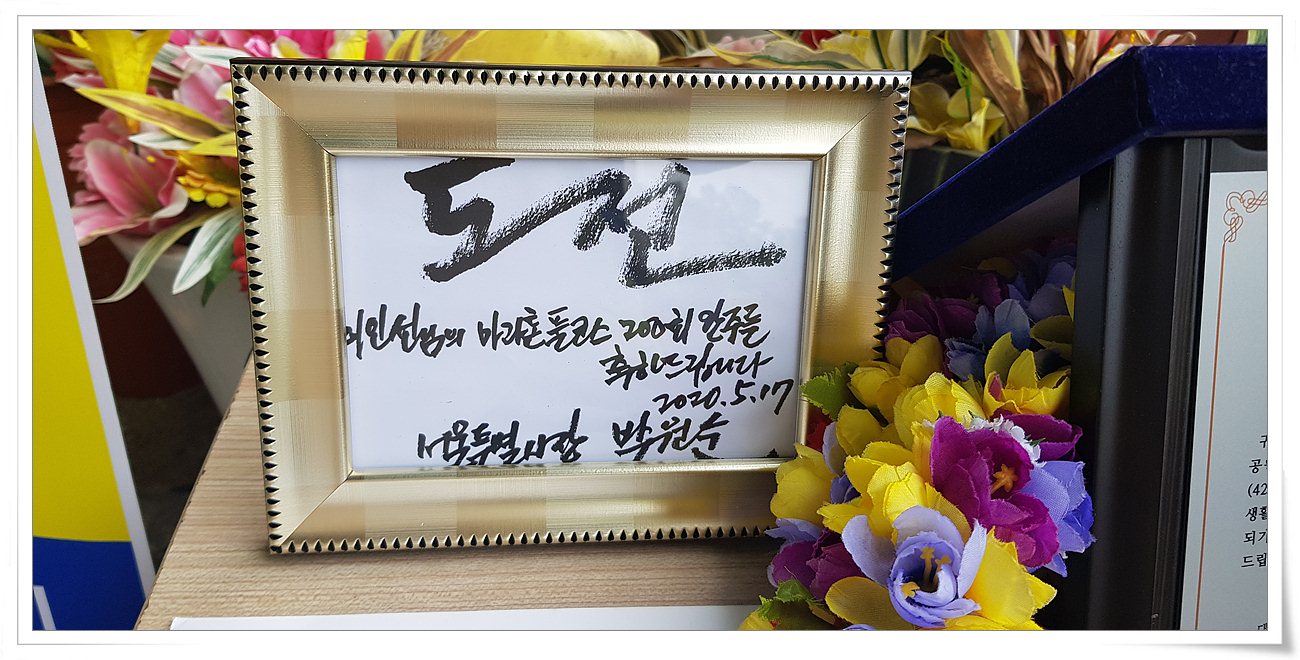 도전
이인선님의 마라톤 풀코스 200회 완주를
축하드립니다
2020.5.17
서울특별시장 박원순
귀
공
(42
생활
되기
드립